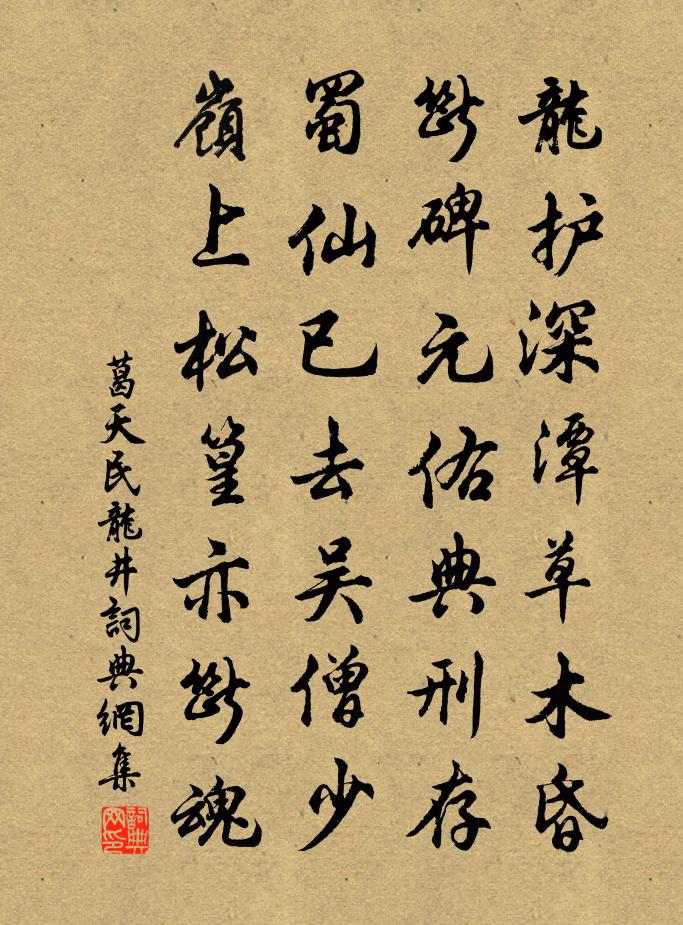 龍护深潭草木昏
斷碑元佑典刑存
蜀仙已去吴僧少
嶺上松篁亦斷魂
葛天民龍井詞典網集
詞典網印